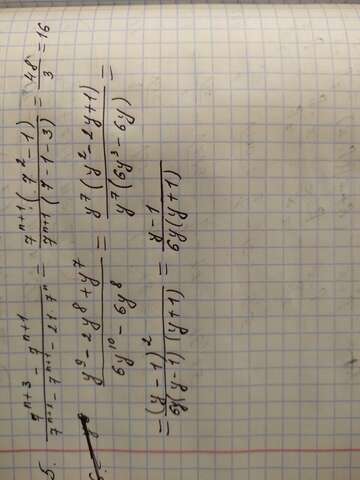 5. \frac{7^{n+3} - 7^{n+1}}{7^{n+2} - 7^{n+1} - 21 \cdot 7^n} = \frac{7^{n+1}(7^2 - 1)}{7^{n+1}(7 - 1 - 3)} = \frac{48}{3} = 16
6. \frac{y^9 - 2y^8 + y^7}{6y^{10} - 6y^8} = \frac{y^7(y^2 - 2y + 1)}{y^7(6y^3 - 6y)} =
= \frac{(y - 1)^2}{6y(y - 1)(y + 1)} = \frac{y - 1}{6y(y + 1)}